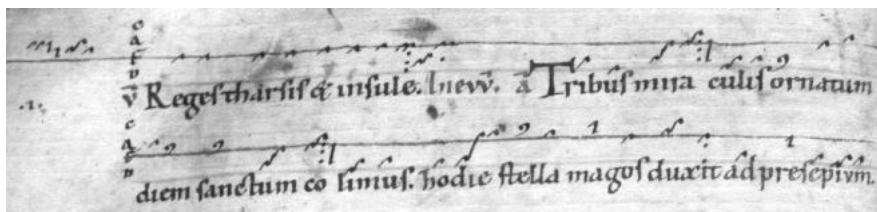 v̄ Reges tharsis & insule. In evv̄. ā Tribus mira culis ornatum
diem sanctum co limus. hodie stella magos duxit ad presepium.